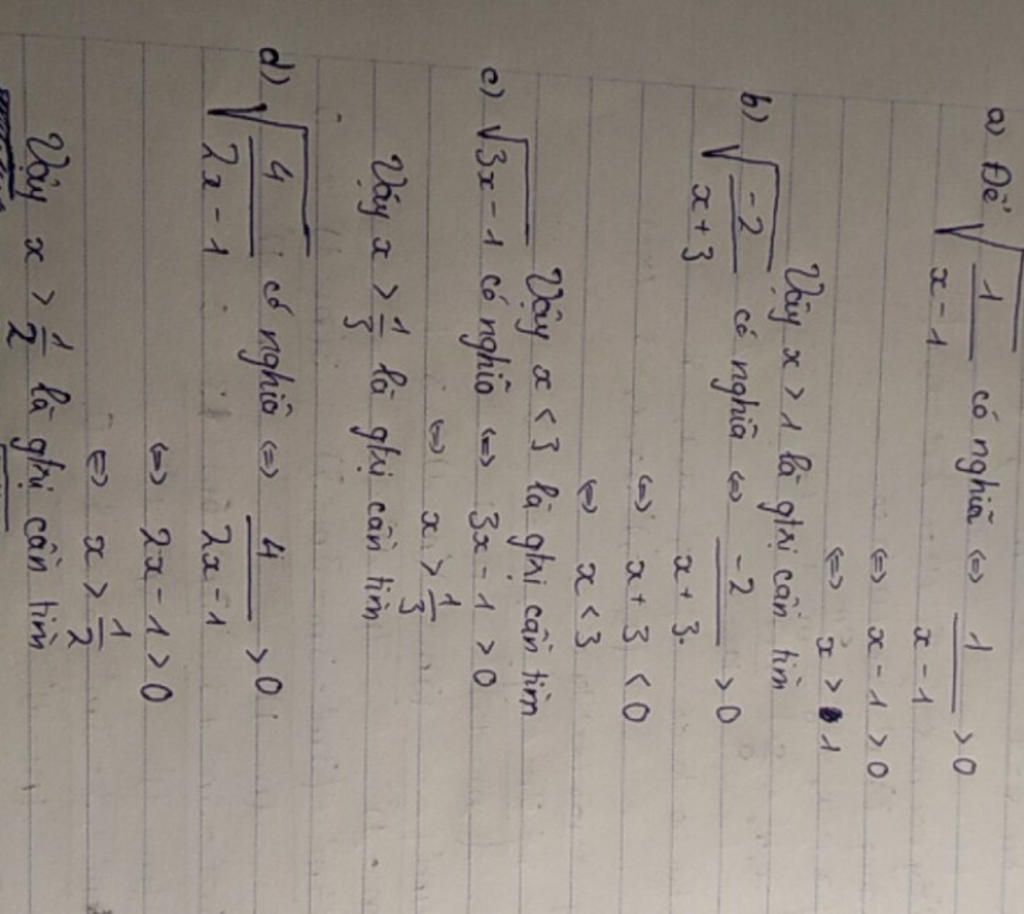 a) Để √(1/(x-1)) có nghĩa ⇔ 1/(x-1) > 0
⇔ x - 1 > 0
⇔ x > 1
Vậy x > 1 là gtrị cần tìm
b) √(-2/(x+3)) có nghĩa ⇔ -2/(x+3) > 0
⇔ x + 3 < 0
⇔ x < 3
Vậy x < 3 là gtrị cần tìm
c) √(3x - 1) có nghĩa ⇔ 3x - 1 > 0
⇔ x > 1/3
Vậy x > 1/3 là gtrị cần tìm
d) √(4/(2x - 1)) có nghĩa ⇔ 4/(2x - 1) > 0
⇔ 2x - 1 > 0
⇔ x > 1/2
Vậy x > 1/2 là gtrị cần tìm